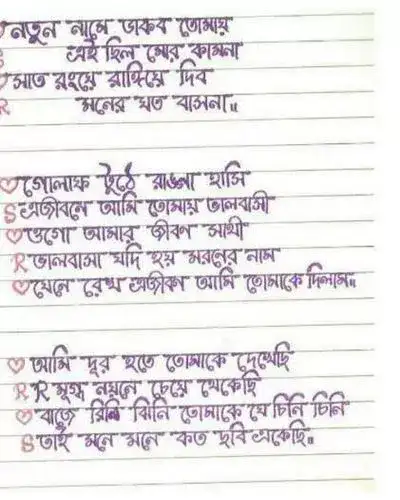 ♡ নতুন নামে ডাকব তোমায়
S এই ছিল মোর কামনা
♡ সাত রংয়ে রাঙ্গিয়ে দিব
R মনের যত বাসনা॥
♡ গোলাফ ঠুঠে রাঙ্গা হাসি
S এজীবনে আমি তোমায় ভালবাসী
♡ ওগো আমার জীবণ সাথী
R ভালবাসা যদি হয় মরনের নাম
♡ যেনে রেখ এজীবণ আমি তোমাকে দিলাম॥
♡ আমি দুর হতে তোমাকে দেখেছি
R R মুগ্ধ নয়নে চেয়ে থেকেছি
♡ বাজে রিনি ঝিনি তোমাকে যে চিনি চিনি
S তাই মনে মনে কত ছবি একেছি॥